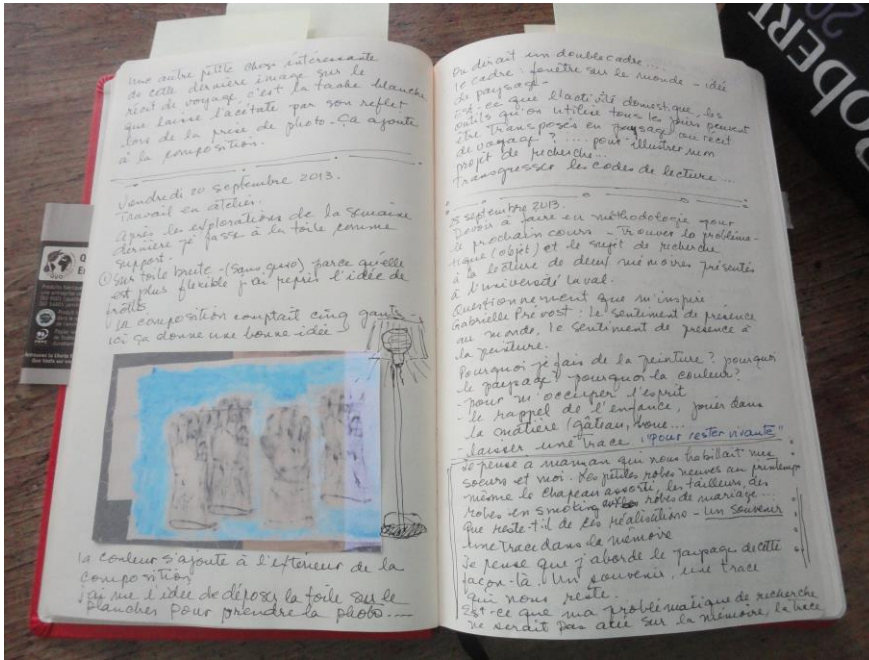 Une autre petite chose intéressante
de cette dernière image sur le
récit de voyage, c'est la tache blanche
que laisse l'acétate par son reflet
lors de la prise de photo. Ça ajoute
à la composition.
Vendredi 20 septembre 2013.
Travail en atelier.
Après les explorations de la semaine
dernière je passe à la toile comme
support.
Sur toile brute - (sans gesso) parce qu'elle
est plus flexible j'ai repris l'idée de
frottis
La composition comptait cinq gants
ici ça donne une bonne idée
la couleur s'ajoute à l'extérieur de la
composition
j'ai eu l'idée de déposer la toile sur le
plancher pour prendre la photo...
On dirait un double cadre....
le cadre : fenêtre sur le monde - idée
de paysage -
Est-ce que l'activité domestique, les
outils qu'on utilise tous les jours peuvent
être transposés en paysage ou récit
de voyage ? .... pour illustrer mon
projet de recherche...
transgresser les codes de lecture....
septembre 2013.
Devoir à faire en méthodologie pour
le prochain cours - Trouver la probléma-
tique (objet) et le sujet de recherche
à la lecture de deux mémoires présentés
à l'université Laval.
Questionnement que m'inspire
Gabrielle Prévost : le sentiment de présence
au monde, le sentiment de présence à
la peinture.
Pourquoi je fais de la peinture ? pourquoi
le paysage ? pourquoi la couleur ?
- pour m'occuper l'esprit
- le rappel de l'enfance, jouer dans
la matière (gâteau, boue...
- laisser une trace "pour rester vivante"
Je pense à maman qui nous habillait mes
soeurs et moi. Les petites robes neuves au printemps
même le chapeau assorti, les tailleurs, des
robes en smoking robes de mariage...
que reste-t-il de ces réalisations - un souvenir
une trace dans la mémoire
Je pense que j'aborde le paysage de cette
façon-là. Un souvenir, une trace
qui nous reste.
Est-ce que ma problématique de recherche
ne serait pas axée sur la mémoire, la trace
ROBERT
20